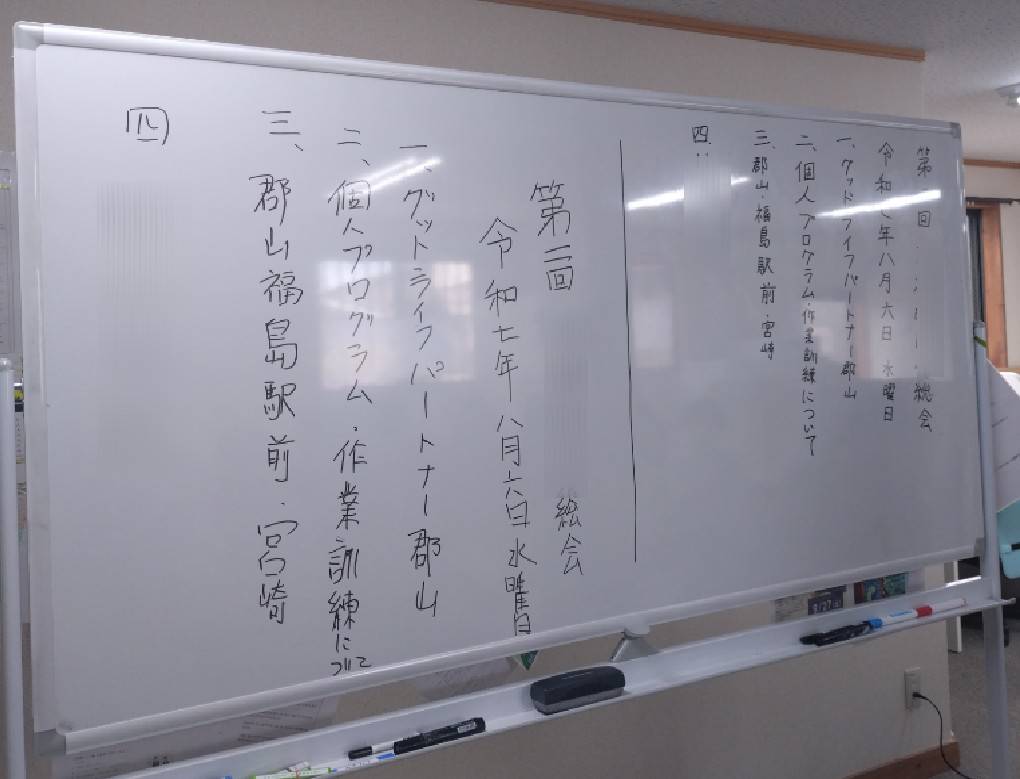 第二回
総会
令和七年八月六日 水曜日
一、グッドライフパートナー郡山
二、個人プログラム・作業訓練について
三、郡山・福島駅前・宮崎
四、
第二回
絵会
令和七年八月六日水曜日
一、グットライフパートナー郡山
二、個人プログラム・作業訓練について
三、郡山福島駅前・宮崎
四